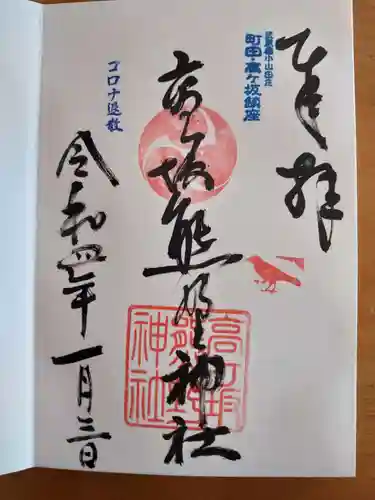 奉拝
武蔵国小山田荘
町田・高ヶ坂鎮座
高ヶ坂熊野神社
高ヶ坂熊野神社
コロナ退散
令和四年一月三日